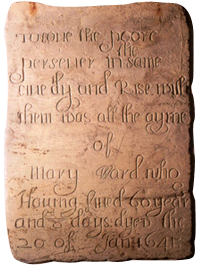 to love the poore
the
persever in same
live dy and Rise with
them was all the ayme
of
Mary Ward who
Having lived 60 years
and 8 days dyed the
20 of Jan 1645